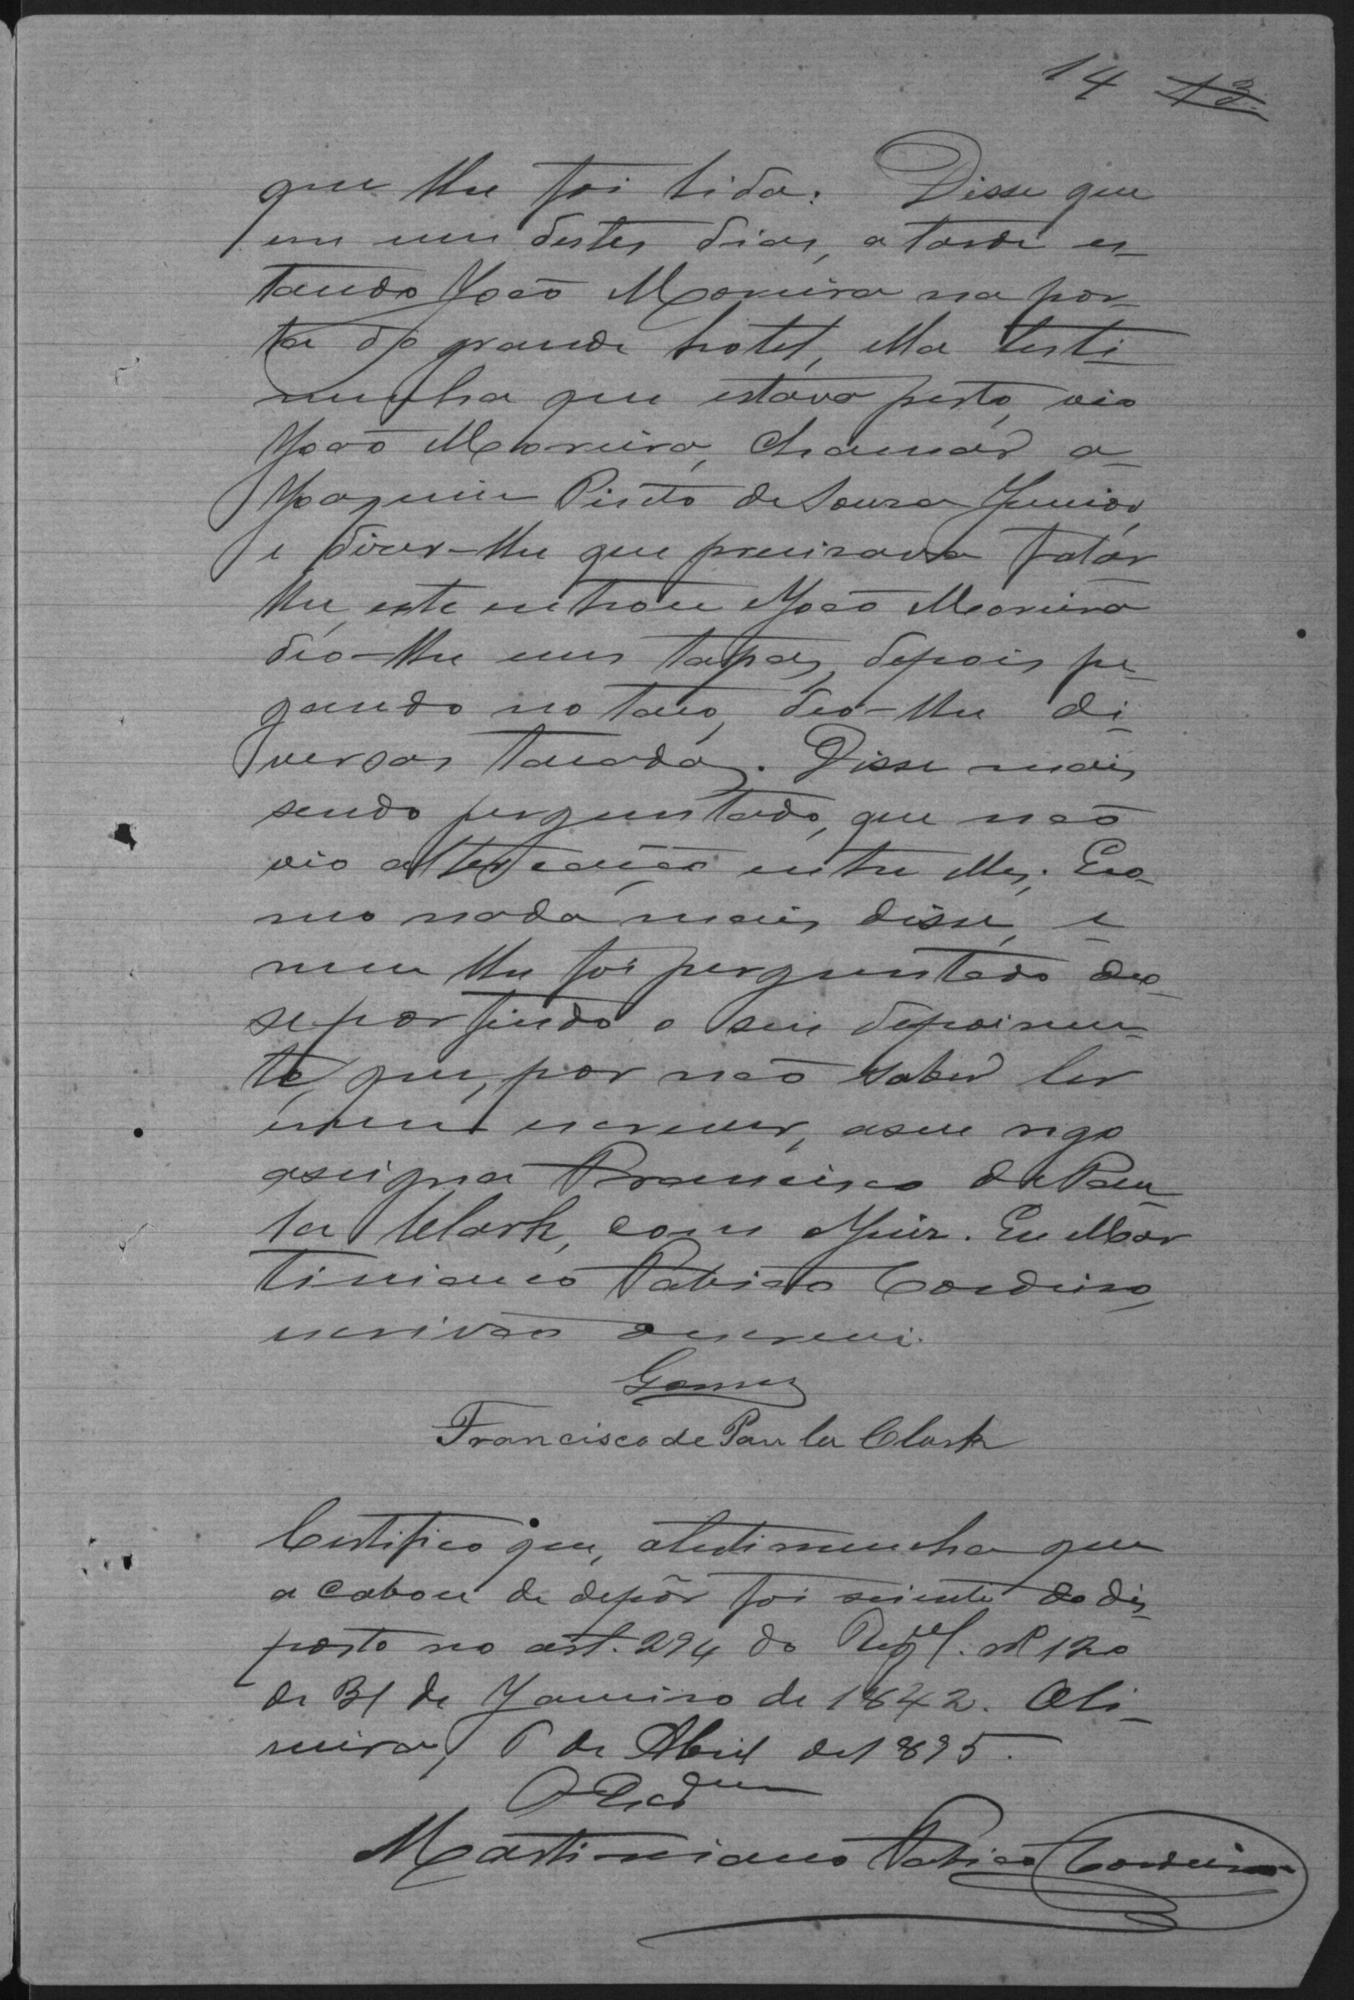 14 13.
que lhe foi lida. Disse que
em um destes dias, a tarde es-
tando João Moreira na por-
ta do grande hotel, ella testi-
munha que estava perto, vio
João Moreira, chamár a
Joaquim Pinto de Souza Junior,
e dizer-lhe que precisava fallár
lhe, este entrou e João Moreira
deo-lhe uns tapas, depois pe-
gando no taco, deo-lhe di-
versas tacadas. Disse mais
sendo perguntado, que não
vio altercação entre elles. E co-
mo nada mais disse, e
nem lhe foi perguntado deo-
se por findo o seu depoimen-
to, que, por não saber ler
e nem escrever, a seu rogo
assigna Francisco de Pau-
la Clark, com o Juiz. Eu Mar
timiano Fabiano Cordeiro,
escrivão o escrevi.
Gomes
Francisco de Paula Clark
Certifico que, a testimunha que
acabou de depôr foi sciente do dis-
posto no art. 294 do Regul. nº 120
de 31 de Janeiro de 1842. Oli-
veira, 6 de Abril de 1895.
O Escrm
Martimiano Cordeiro